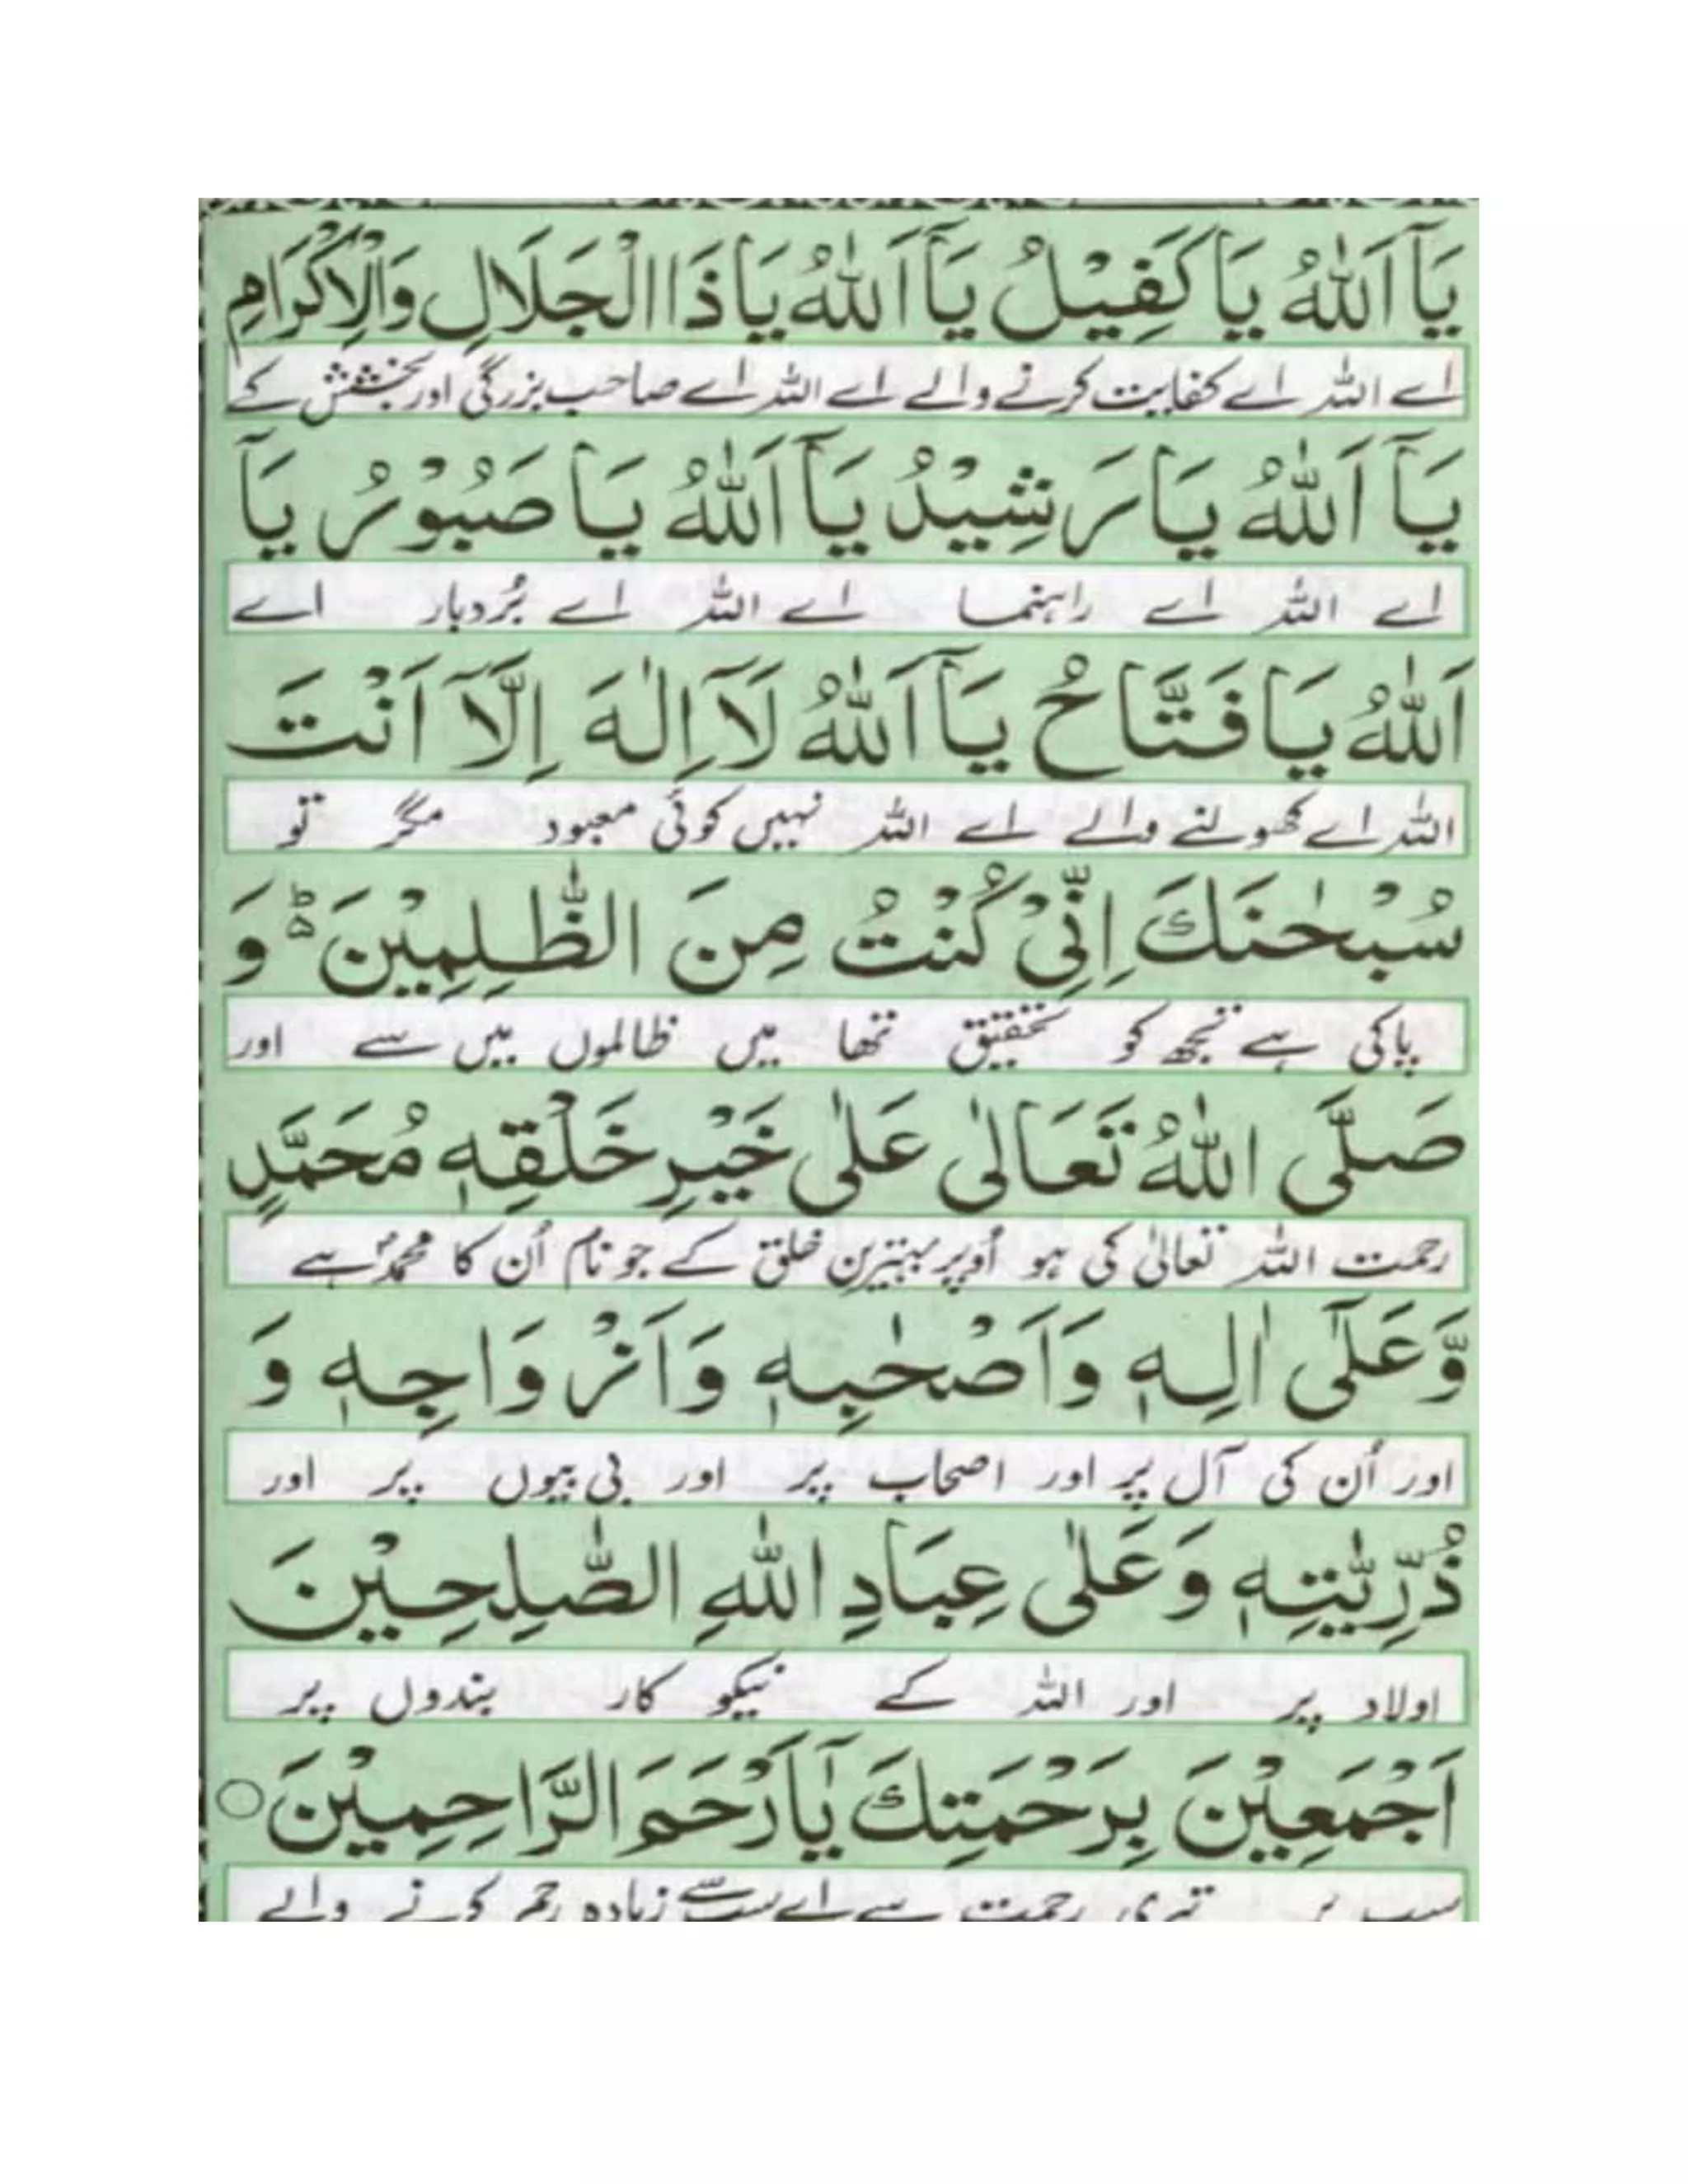 يَآ اَللّٰهُ يَا كَفِيْلُ يَآ اَللّٰهُ يَا ذَا الْجَلَالِ وَالْاِكْرَامِ
اے اللہ اے کفایت کرنے والے اے اللہ اے صاحب بزرگی اور بخشش کے
يَآ اَللّٰهُ يَا رَشِيْدُ يَآ اَللّٰهُ يَا صَبُوْرُ يَآ
اے اللہ اے راہنما اے اللہ اے بُردبار اے
اَللّٰهُ يَا فَتَّاحُ يَآ اَللّٰهُ لَآ اِلٰهَ اِلَّآ اَنْتَ
اللہ اے کھولنے والے اے اللہ نہیں کوئی معبود مگر تو
سُبْحٰنَكَ اِنِّيْ كُنْتُ مِنَ الظّٰلِمِيْنَ ؕ وَ
پاکی ہے تجھ کو تحقیق تھا میں ظالموں میں سے اور
صَلَّى اللّٰهُ تَعَالٰى عَلٰى خَيْرِ خَلْقِهٖ مُحَمَّدٍ
رحمت اللہ تعالیٰ کی ہو اُوپر بہترین خلق کے جو نام اُن کا محمدؐ ہے
وَّعَلٰٓى اٰلِهٖ وَاَصْحٰبِهٖ وَاَزْوَاجِهٖ وَ
اور اُن کی آل پر اور اصحاب پر اور بی بیوں پر اور
ذُرِّيّٰتِهٖ وَعَلٰى عِبَادِ اللّٰهِ الصّٰلِحِيْنَ
اولاد پر اور اللہ کے نیکو کار بندوں پر
اَجْمَعِيْنَ بِرَحْمَتِكَ يٰٓاَرْحَمَ الرَّاحِمِيْنَ ○
سب پر تیری رحمت سے اے سب سے زیادہ رحم کرنے والے